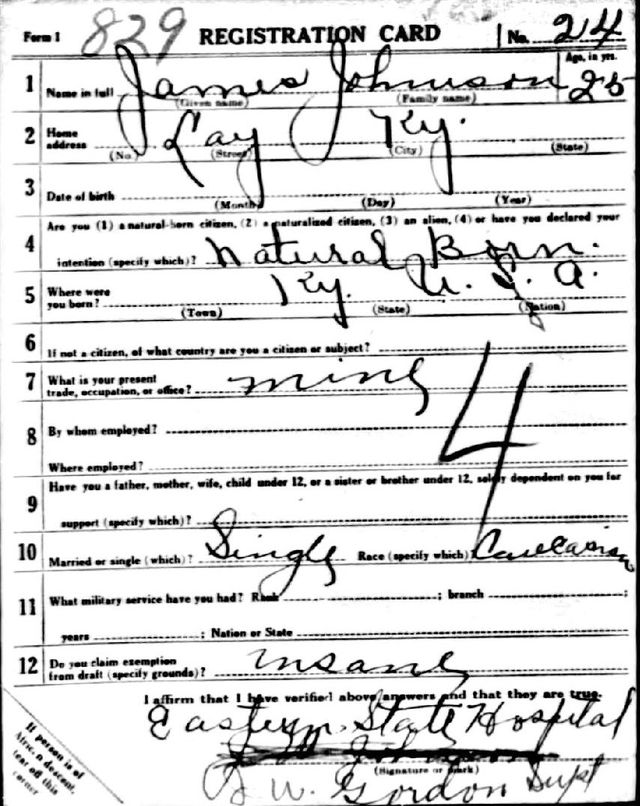 Form 1 829 REGISTRATION CARD No. 24
Age, in yrs.
1 Name in full James Johnson 25
(Given name) (Family name)
2 Home address Lay Ky.
(No.) (Street) (City) (State)
3 Date of birth
(Month) (Day) (Year)
Are you (1) a natural-born citizen, (2) a naturalized citizen, (3) an alien, (4) or have you declared your
4 intention (specify which)? Natural Born.
5 Where were you born? Ky. U. S. A.
(Town) (State) (Nation)
6 If not a citizen, of what country are you a citizen or subject?
7 What is your present
trade, occupation, or office?
4
8 By whom employed?
Where employed?
9 Have you a father, mother, wife, child under 12, or a sister or brother under 12, solely dependent on you for
support (specify which)?
10 Married or single (which)? Single Race (specify which)?
11 What military service have you had? Rank ; branch ;
years ; Nation or State
12 Do you claim exemption
from draft (specify grounds)? Insane
I affirm that I have verified above answers and that they are true.
Eastern State Hospital
(Signature or mark)
W. Gordon Supt
If person is of
African descent,
tear off this
corner